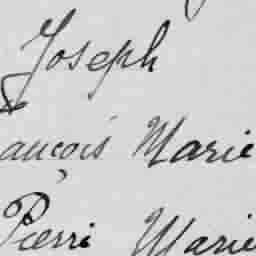 Joseph
ançois Marie
Pierri Marie